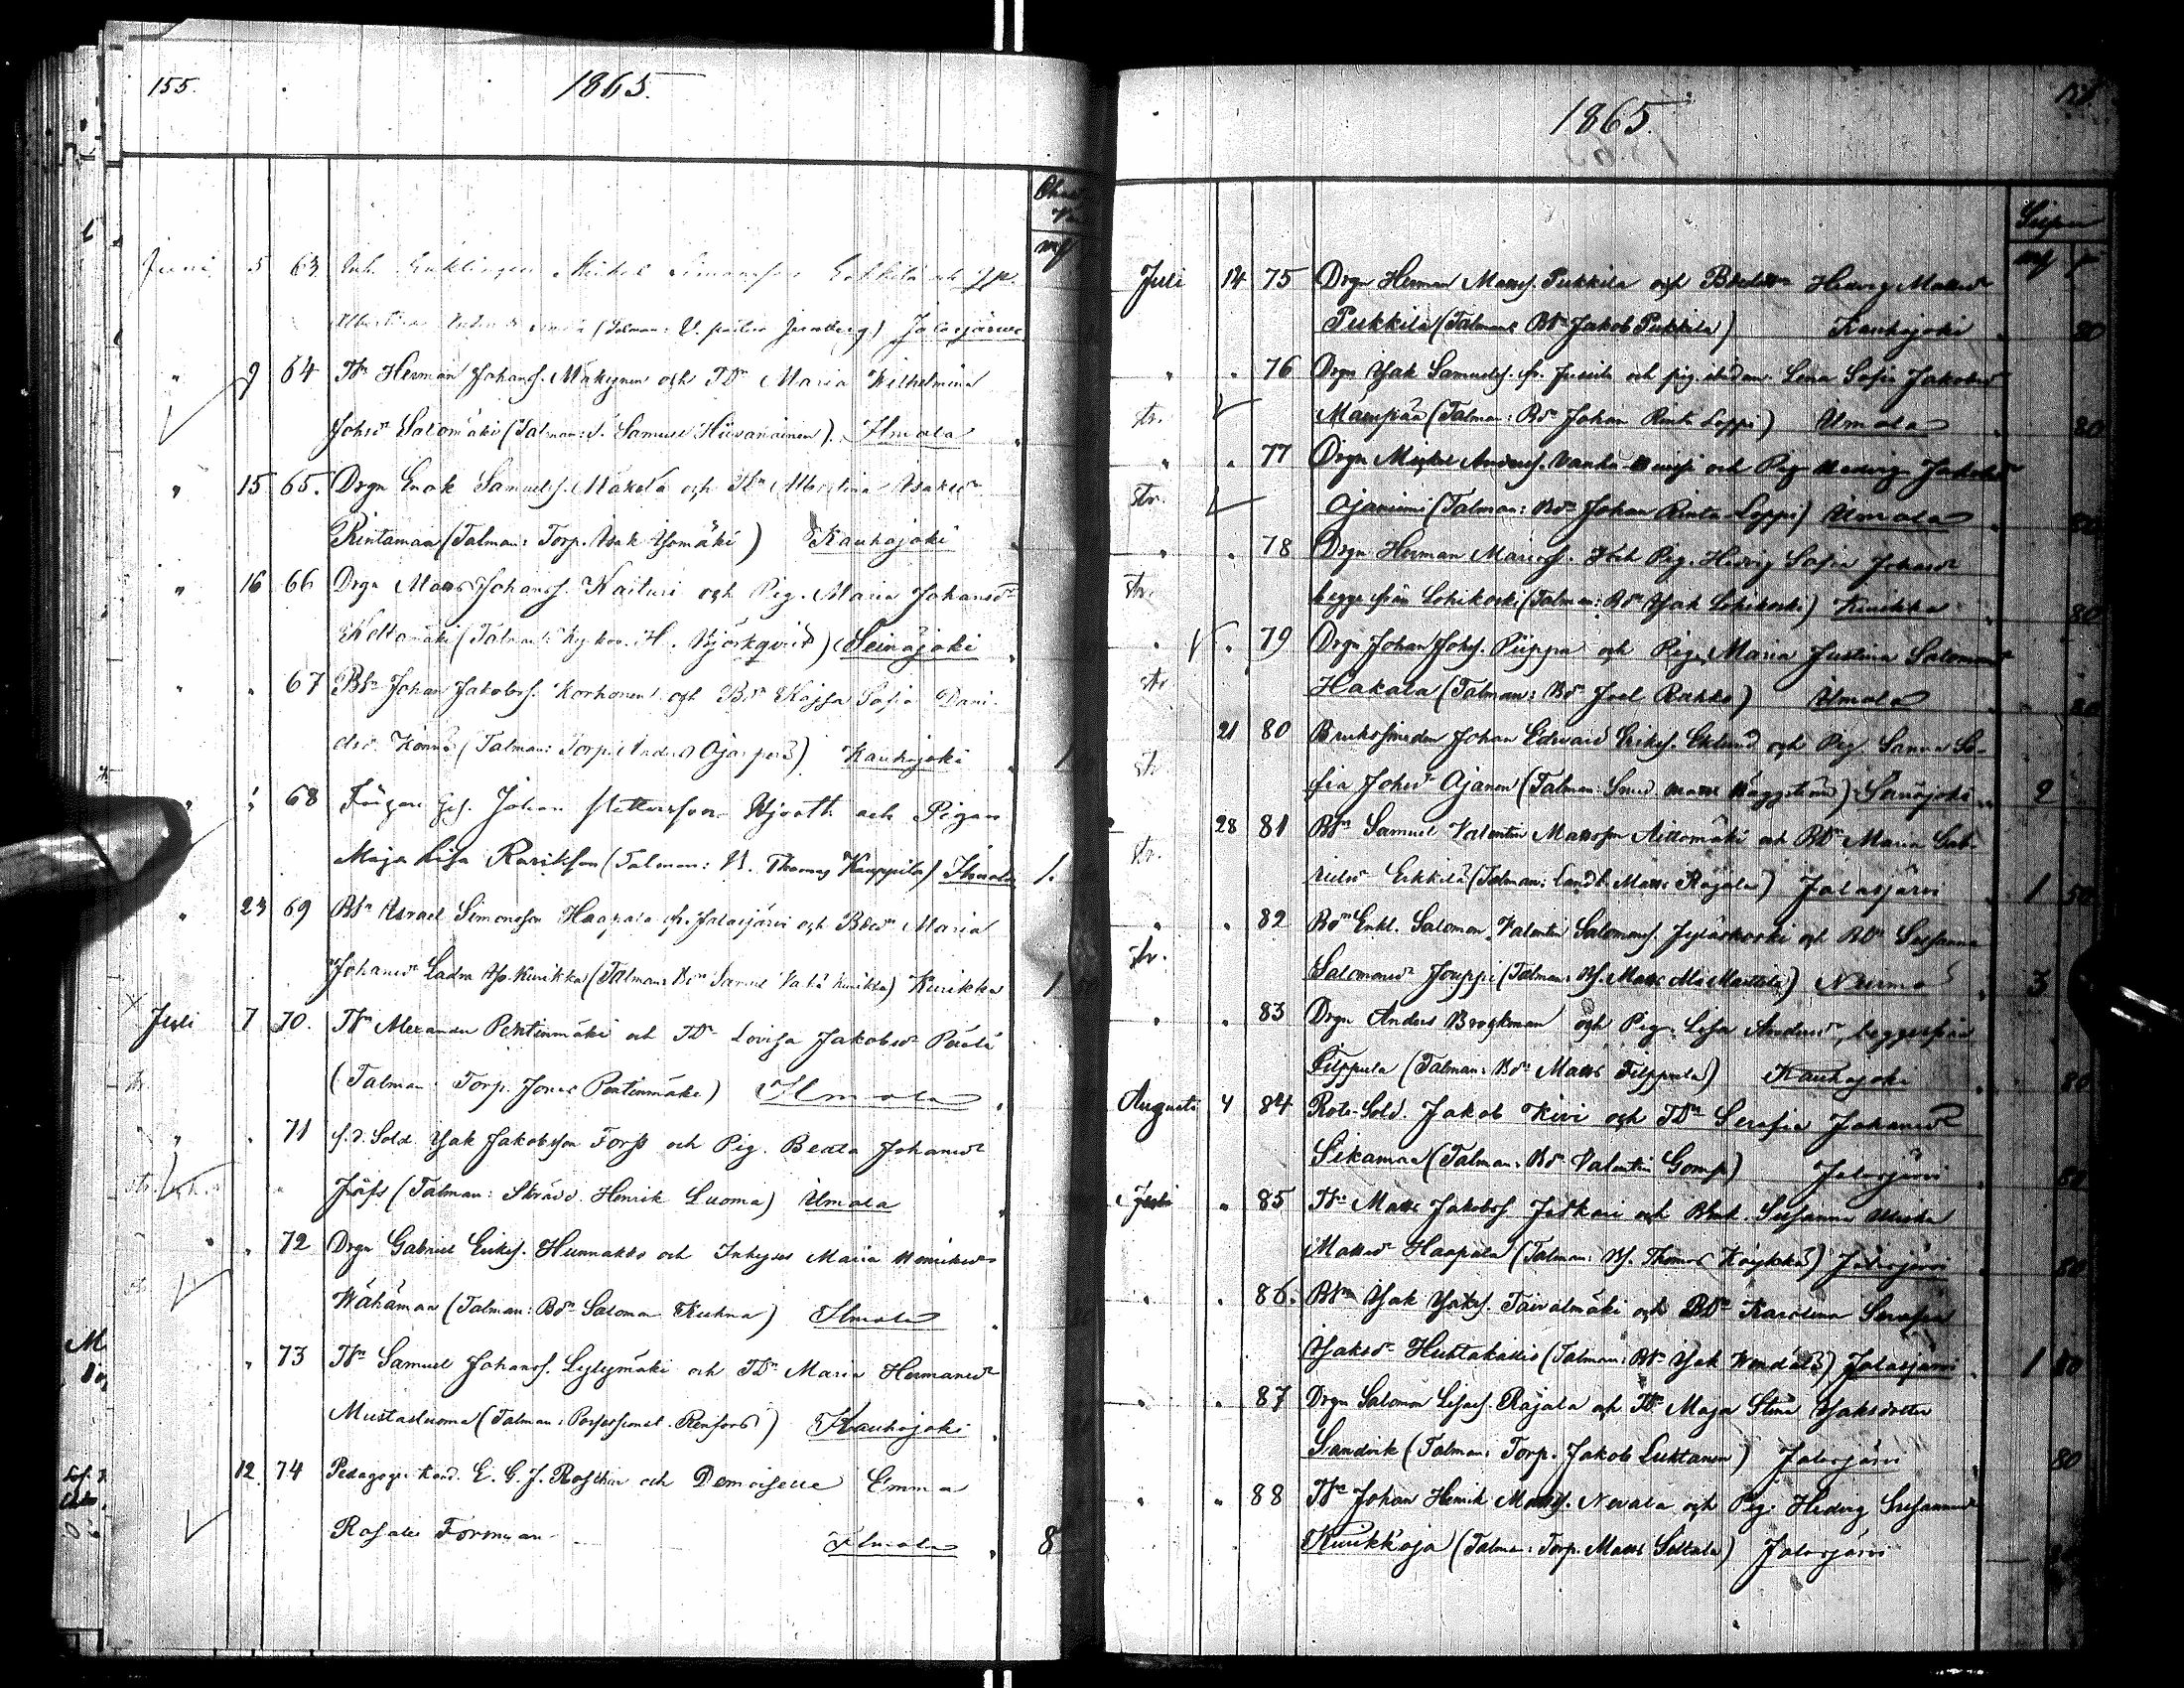 155.
1865.
Juni 5 63 Enkl. Enklingen Mickel Simonsson
(Talman: Jalasjärvi
" 9 64 Tsn Herman Johanss. Mäkynen och TDr Maria Wilhelmina
Johsdr Salomäki (Talman: Samuel Hiivanainen). Ilmola
" 15 65. Drgn Enok Samuelss. Mäkelä och TDr Albertina Isaksdr
Rintamaa (Talman: Torp. Isak Yömäki) Kauhajoki
" 16 66 Drgn Matts Johanss. Kaituri och Pig. Maria Johansdr
Keltamäki (Talman: H. Björkqvist) Seinäjoki
" " 67 BSn Johan Jakobss. Korhonen och BDr Kajsa Sofia Dani-
elsdr Könnö (Talman: Torp. Anders Ojanperä) Kauhajoki 1
" " 68 Färgare Ges. Johan Pettersson Hjorth och Pigan
Maja Lisa Rurikson (Talman: B. Thomas Kauppila) Ilmola 1.
" 23 69 BSn Israel Simonsson Haapala fr. Jalasjärvi och BDr Maria
Johansdr Ladva fr. Kurikka (Talman: Bdn Samuel Kurikka) Kurikka 1
Juli 7 70. TSn Alexander Pentinmäki och TDr Lovisa Jakobsdr Perälä
(Talman: Torp. Jonas Pentinmäki) Ilmola
" " 71 f.d. Sold. Isak Jakobsson Forss och Pig. Beata Johansdr
Jäfs (Talman: Skrädd. Henrik Luoma) Ilmola
" " 72 Drgn Gabriel Eriks. Hunnakko och Inhyses Maria Henriksdr
Wähämaa (Talman: Bdn Salomon Kuhna) Ilmola
" 73 TSn Samuel Johanss. Lylymäki och TDr Maria Hermansdr
Mustaluoma (Talman: Possessionat. Renfors) Kauhajoki
12 74 Pedagogie Kand. E. G. J. Rosthin och Demoiselle Emma
Rosalie Forsman Ilmola 8
1865.
Juli 14 75 Drgn Herman Matts. Pukkila och Hedvig Mattsdr
Pukkila (Talman: BSn Jakob Pukkila) Kauhajoki 80
" " 76 Drgn Isak Samuels. fr. och pig. Lena Sofia Jakobsdr
str. Mäenpää (Talman: Bdn Johan Rinta Loppi) Ilmola 80
" " 77 Drgn Mickel Anders. och Pig. Hedvig Jakobsdr
str. Ojaniemi (Talman: Bdn Johan Rinta Loppi) Ilmola 80
" " 78 Drgn Herman Mariass. och Pig. Hedvig Sofia Johansdr
str. begge från Lohikoski (Talman: Bdn Isak Lohikoski) Kurikka 80
" " 79 Drgn Johan Johs. Piippa och Pigan Maria Justina Salomonsdr
str. Hakala (Talman: Bdn Joel Rukko) Ilmola 80
21 80 Brukssmeden Johan Edvard Eriks. Eklund och Pig. Sanna So-
str. fia Johsdr Ojanen (Talman: Smed Matts Häggström) Seinäjoki 2
28 81 BSn Samuel Valentin Mattsson Aittomäki och BDr Maria Gab-
str. rielsdr Erkkilä (Talman: Landb. Matts Rajala) Jalasjärvi 1 50
" " 82 Bdn Enkl. Salomon Valentin Salomons. Jyläskoski och BDr Susanna
str. Salomonsdr Jouppi (Talman: BS. Matts Ala Marttila) Nurmo 3
" " 83 Drgn Anders Brogkman och Pig. Lisa Andersdr, begge från
Filppula (Talman: Bdn Matts Filppula) Kauhajoki 80
Augusti 4 84 Rote-Sold. Jakob Kivi och TDr Serafia Johansdr
Sikamaa (Talman: Bdn Valentin Gomp) Jalasjärvi 80
Juli " 85 TSn Matts Jakobss. Jutkari och Susanna
Mattsdr Haapala (Talman: BS. Thomas Köykkä) Jalasjärvi 80
" " 86. BSn Isak Isaks. Taivalmäki och BDr Karolina Serafia
Isaksdr Huhtakallio (Talman: BSn Isak Wendelä) Jalasjärvi 1 50
" " 87 Drgn Salomon Lisas. Rajala och TDr. Maja Stina Isaksdotter
Sandvik (Talman: Torp. Jakob Luhtanen) Jalasjärvi 80
" " 88 TSn Johan Henrik Matts. Nevala och Pig. Hedvig Susannasdr
Kuukkoja (Talman: Torp. Matts Siltala) Jalasjärvi